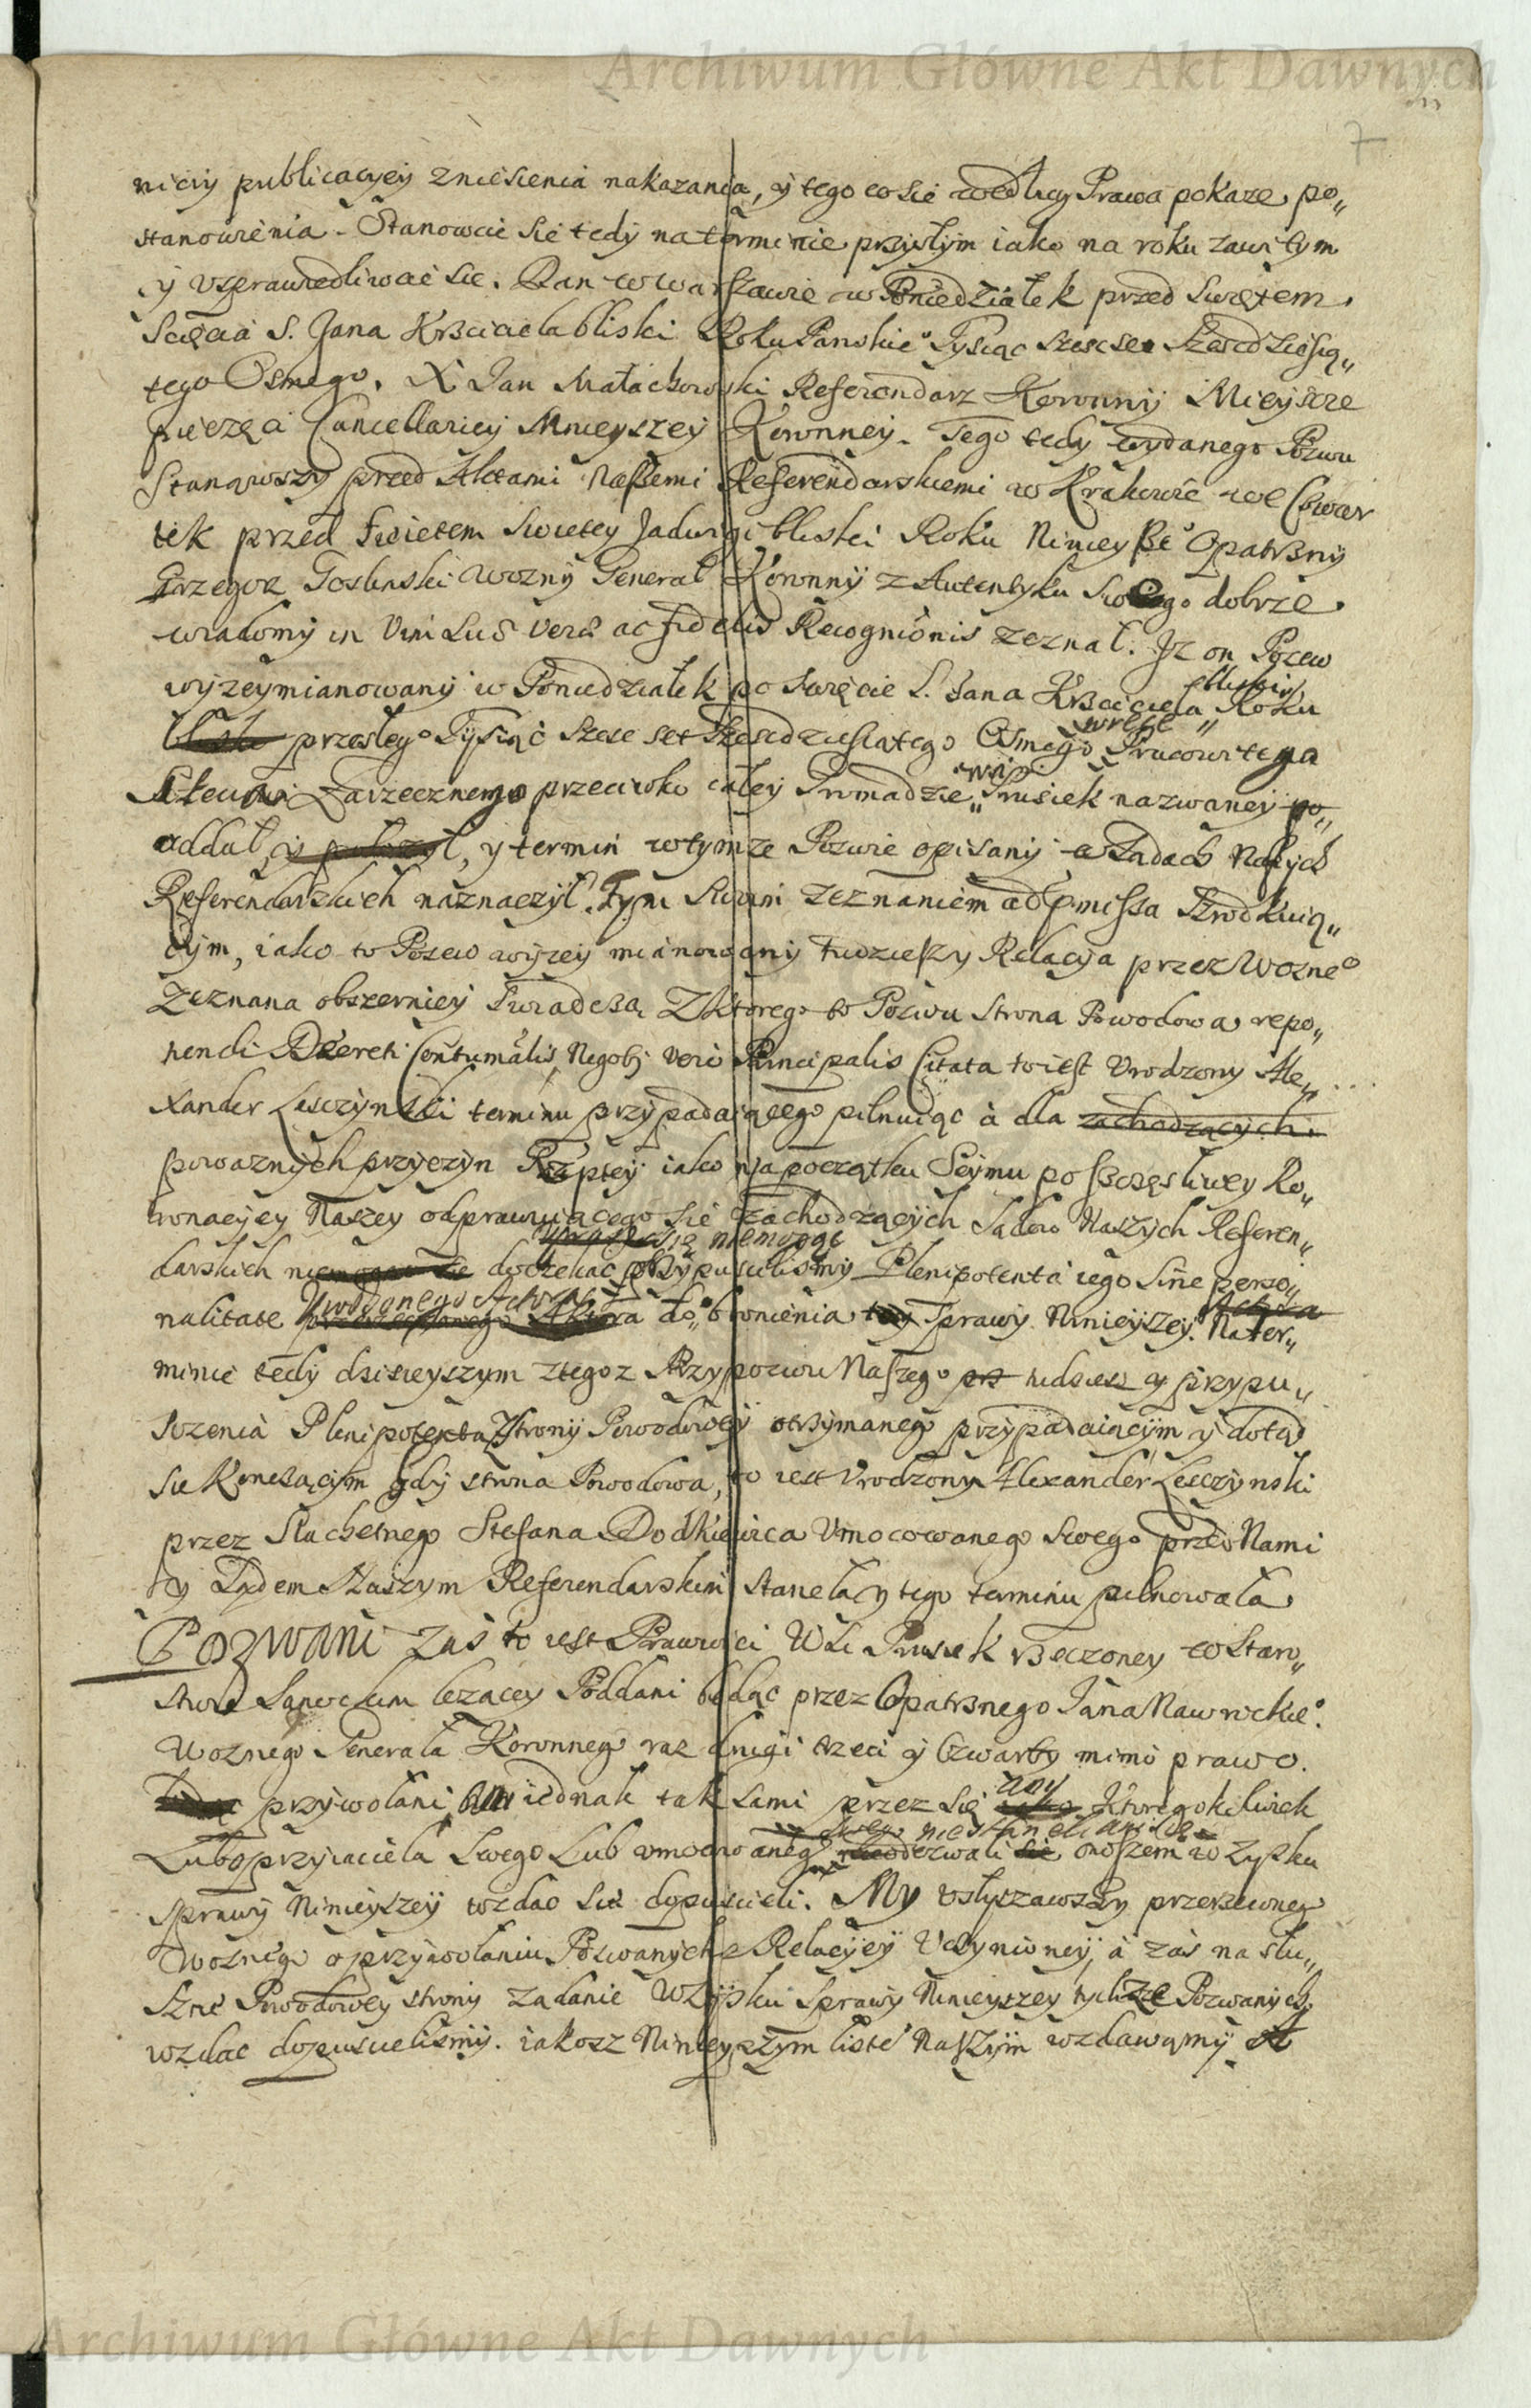 Archiwum Główne Akt Dawnych
7
niciy publicacyey zniesienia nakazania, y tego co sie według Prawa pokaze, po„
stanowienia. Stanowcie sie tedy na terminie przyszłym iako na roku zawitym
y usprawiedliwcie sie. Dan w Warszawie w Poniedziałek przed Swiętem
Scięcia S. Jana Krzciciela bliski Roku Panskieo Tysiąc Szescset Szescdziesią„
tego Osmego. X Jan Małachowski Referendarz Koronny Mieysce
pieczęci Cancellariey Mnieyszey Koronney. Tego tedy wydanego Pozwu
Stanąwszy przed Aktami Naszemi Referendarskiemi w Krakowie we Czwar
tek przed Swietem Swietey Jadwigi bliski Roku Ninieyszeo Opatrzny
Grzegorz Goslinski Wozny Generał Koronny z Autentyku Swoiego dobrze
wiadomy in Vim Suæ veræ ac fidelis Recognionis zeznał. Jz on Pozew
wyzeymianowany w Poniedziałek po Swięcie S. Jana Krzciciela Roku
bliskim
przeszłego Tysiąć Szesc set Szescdziesiątego Osmego Pracowitego
w ręce
Zarzecznemu przeciwko całey Gromadzie „ Prusiek nazwaney
wsi
oddał, y termin w tymze Pozwie opisany w Sadach Naszych
Referendarskich naznaczył. Tym Swoim zeznaniem ad præmissa Szrodkuią„
cym, iako to Pozew wyzey mianowany tudzieszy Relacya przez Wozneo
Zeznana obszerniey Swiadczą. Z ktorego to Pozwu Strona Powodowa repo„
nendi Decreti Contumalis Negotij vero Principalis Citata to iest Vrodzony Ale„
xander Lesczynski terminu przypadaiącego pilnuiąc à dla zachodzących
powaznych przyczyn Rzptey iako na początku Seymu po szczęsliwey Ko„
ronacyey Naszey odprawuiącego sie zachodzących Sadow Naszych Referen„
się niemogąc
darskich doczekać przypuscilismy Plenipotenta iego sine perso„
Urodzonego Aktora
nalitate do obronienia Sprawy Ninieyszey. Na ter„
minie tedy dzisieyszym z tegoz Przypozwu Naszego tudziesz y przypu„
szczenia Plenipotenta Strony Powodowey otrzymanego przypadaiącym y dotąd
sie konczącym gdy strona Powodowa, to iest Vrodzony Alexander Lesczynski
przez Slachetnego Stefana Dodkiewica Vmocowanego Swego przed Nami
y Sądem Naszym Referendarskim Staneła y tego terminu pilnowała
Pozwani zas to iest Pracowici Wsi Prusiek rzeczoney w Staro„
stwie Sanockim lezacey Poddani będąc przez Opatrznego Jana Nawrockieo
Woznego Generała Koronnego raz drugi trzeci y Czwarty mimo prawo.
przywołani iednak tak sami przez się Ktoregokolwiek
any
Lubo przyiaciela Swego Lub vmocowanego odezwali owszem w Zysku
swego nie staneli ani się
Sprawy Ninieyszey wzdac sie dopuscieli. My vsłyszawszy przerzeconego
Woznego o przywołaniu Pozwanych Relacyey Vczynioney, à zás na słu„
szne Powodowey strony Ządanie W Zysku Sprawy Ninieyszey tychze Pozwanych
wzdac dopuscielismy. iakosz Ninieyszym liste Naszym wzdawamy
Archiwum Główne Akt Dawnych